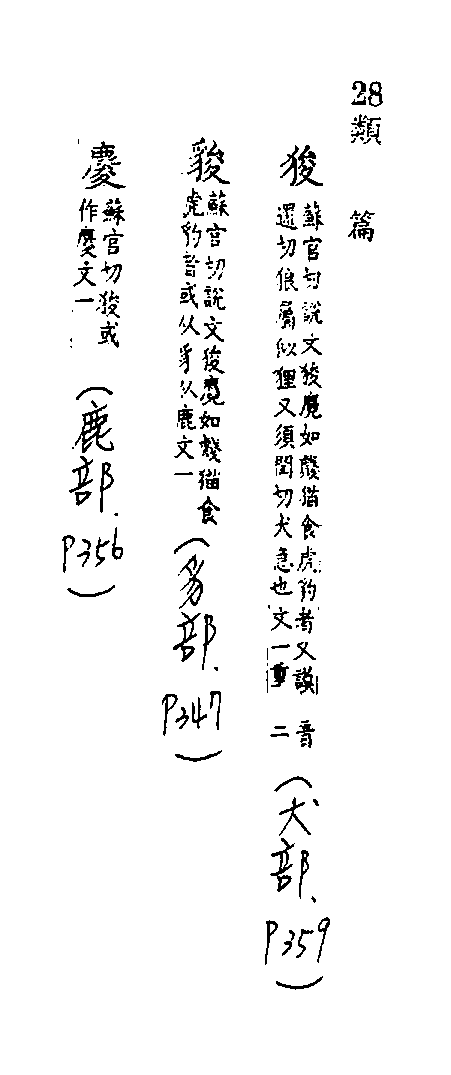 28
類篇
狻 蘇官切說文狻麑如虦猫食虎豹者又謨
還切狼屬似狸又須閏切犬急也文一重音
二
(犬部、P359)
狻 蘇官切說文狻麑如虦猫食
虎豹者或从豸从鹿文一
(豸部、P347)
蘇官切狻或
作文一
(鹿部、P356)